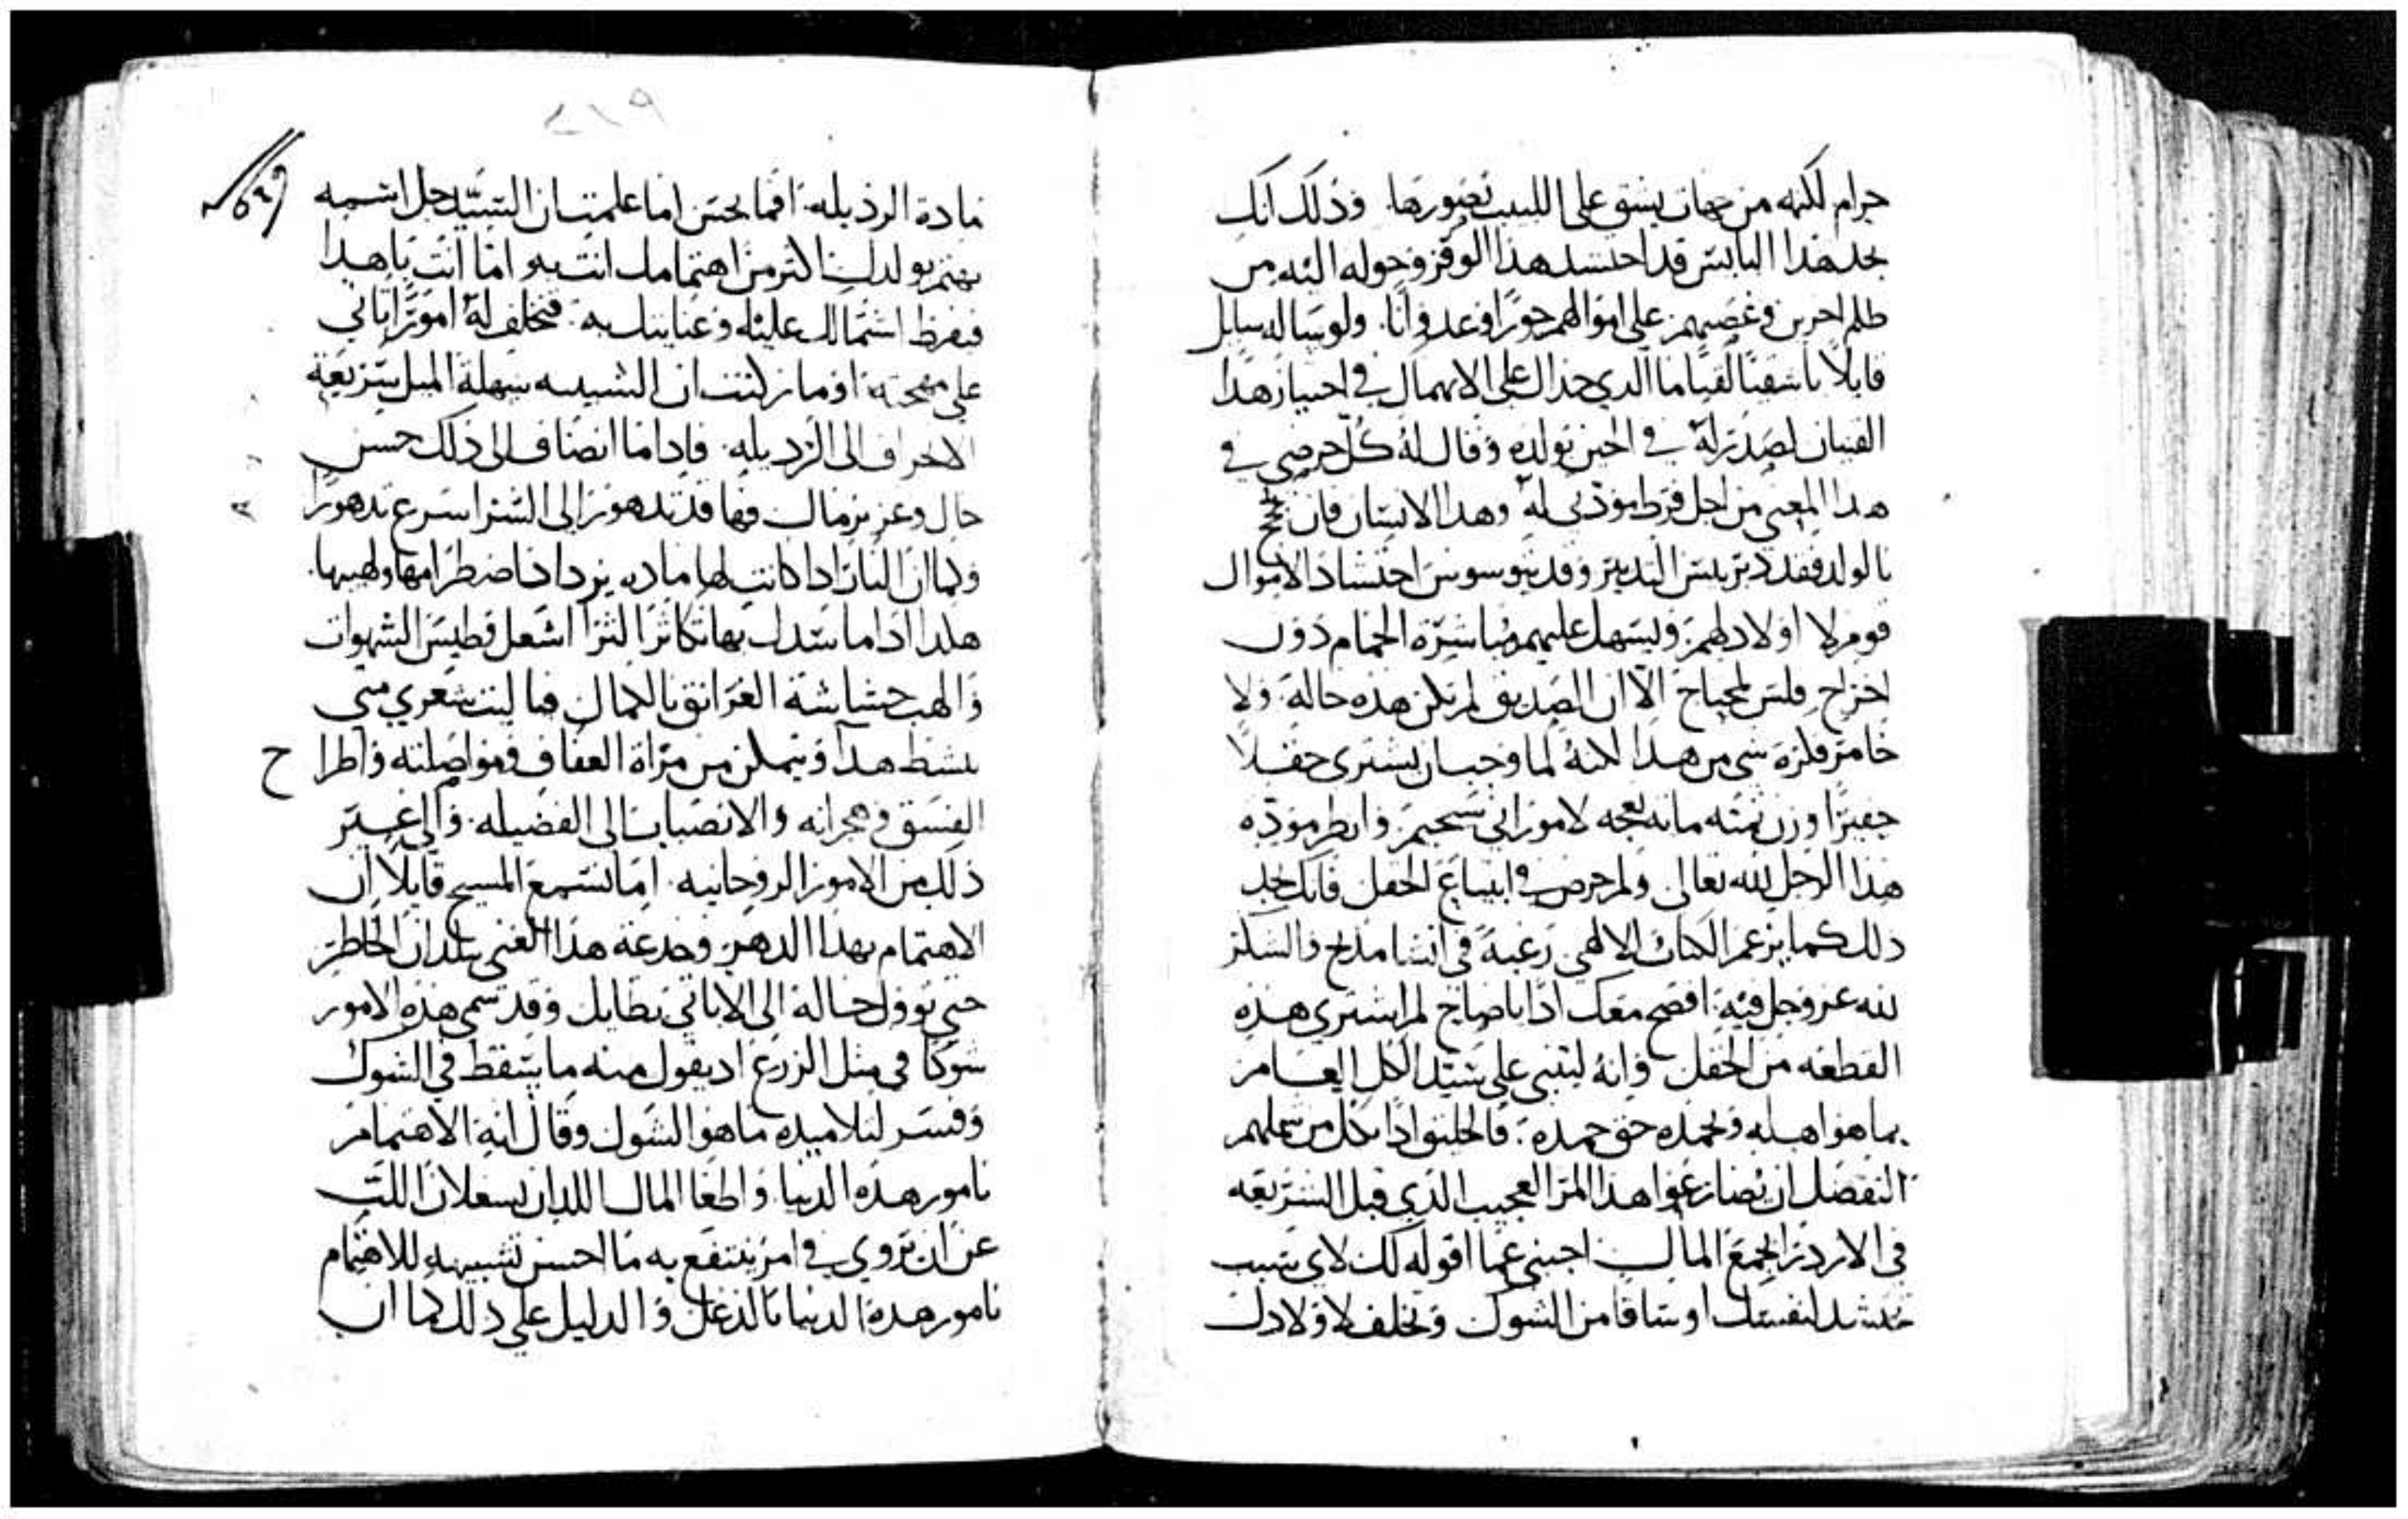 حرام لكنه من جهات يشق على اللبيب تصورها وذلك انك
تجد هذا البايس قد احتشد هذا الوفر وحوله اليه من
ظلم اخرين وغصبهم على اموالهم جورا وعدوانا ولو ساله سايل
قايلا يا شقيا لقيا ما الذي حداك على الانهمال في احتياز هذا
القنيان لصدر له في الحين تولده وقال له كل حرصي في
هذا المعنى من اجل فرط مودتي له وهذا الانسان فان نجح
بالولد فقد دبر بيس التدبير وقد يتوسوس احتشاد الاموال
قوم لا اولاد لهم ويسهل عليهم مباشرة الحمام دون
اخراج فلس لمحتاج الا ان الصديق لم تكن هذه حاله ولا
خامر فكره شي من هذا لكنه لما وجب ان يشترى حقلا
حقيرا وزن ثمنه مايه نعجه لامور ابي سحيم وانظر مودة
هذا الرجل لله تعالى ولم حرص في ابتياع الحقل فانك تجد
ذلك كما يزعم الكتاب الالهي رغبة في انشا مذبح والشكر
لله عز وجل فيه افصح معك اذا يا صاح لم اشترى هذه
القطعه من الحقل وانه ليثني على سيد الكل العامر
بما هو اهله ويحمده حق حمده فاخلقوا اذا بكل من شملهم
التفضل ان يضارعوا هذا المر العجيب الذي قبل الشريعه
في الازدرا لجمع المال اجبني عما اقوله لك لاي سبب
تحشد لنفسك اوساقا من الشوك وتخلف لاولادك
٢١٩
مادة الرذيله افما تحس اما علمت ان السيد جل اسمه
يهتم بولدك اكثر من اهتمامك انت به واما انت يا هذا
فبفرط اشتمالك عليه وعنايتك به فتخلف له امورا تاتي
على مهجته اوما زكنت ان الشبيبه سهلة الميل سريعة
الانحراف الى الرذيله فاذا ما انضاف الى ذلك حسن
حال وعزيز مال فها قد تدهور الى الشر اسرع تدهورا
وكما ان النار اذا كانت لها ماده يزداد اضطرامها ولهيبها
هكذا اذا ما سدك بها تكاثر الثرا اشعل وطيس الشهوات
والهب حشاشة الغرانق بالكمال فيا ليت شعري متى
ينشط هذا ويتمكن من مراة العفاف ومواصلته واطراح
الفسق وهجرانه والانصباب الى الفضيله والى غير
ذلك من الامور الروحانيه اما تسمع المسيح قايلا ان
الاهتمام بهذا الدهر وخدعة هذا الغنى يلدان الخاطر
حتى يوول حاله الى الا ياتي بطايل وقد سمى هذه الامور
شوكا في مثل الزرع اذ يقول منه ما سقط في الشوك
وفسر لتلاميذه ما هو الشوك وقال انه الاهتمام
بامور هذه الدنيا واطغا المال اللذان يشغلان اللب
عن ان يروي في امر ينتفع به ما احسن تشبيهه للاهتمام
بامور هذه الدنيا بالدغل والدليل على ذلك كما ان